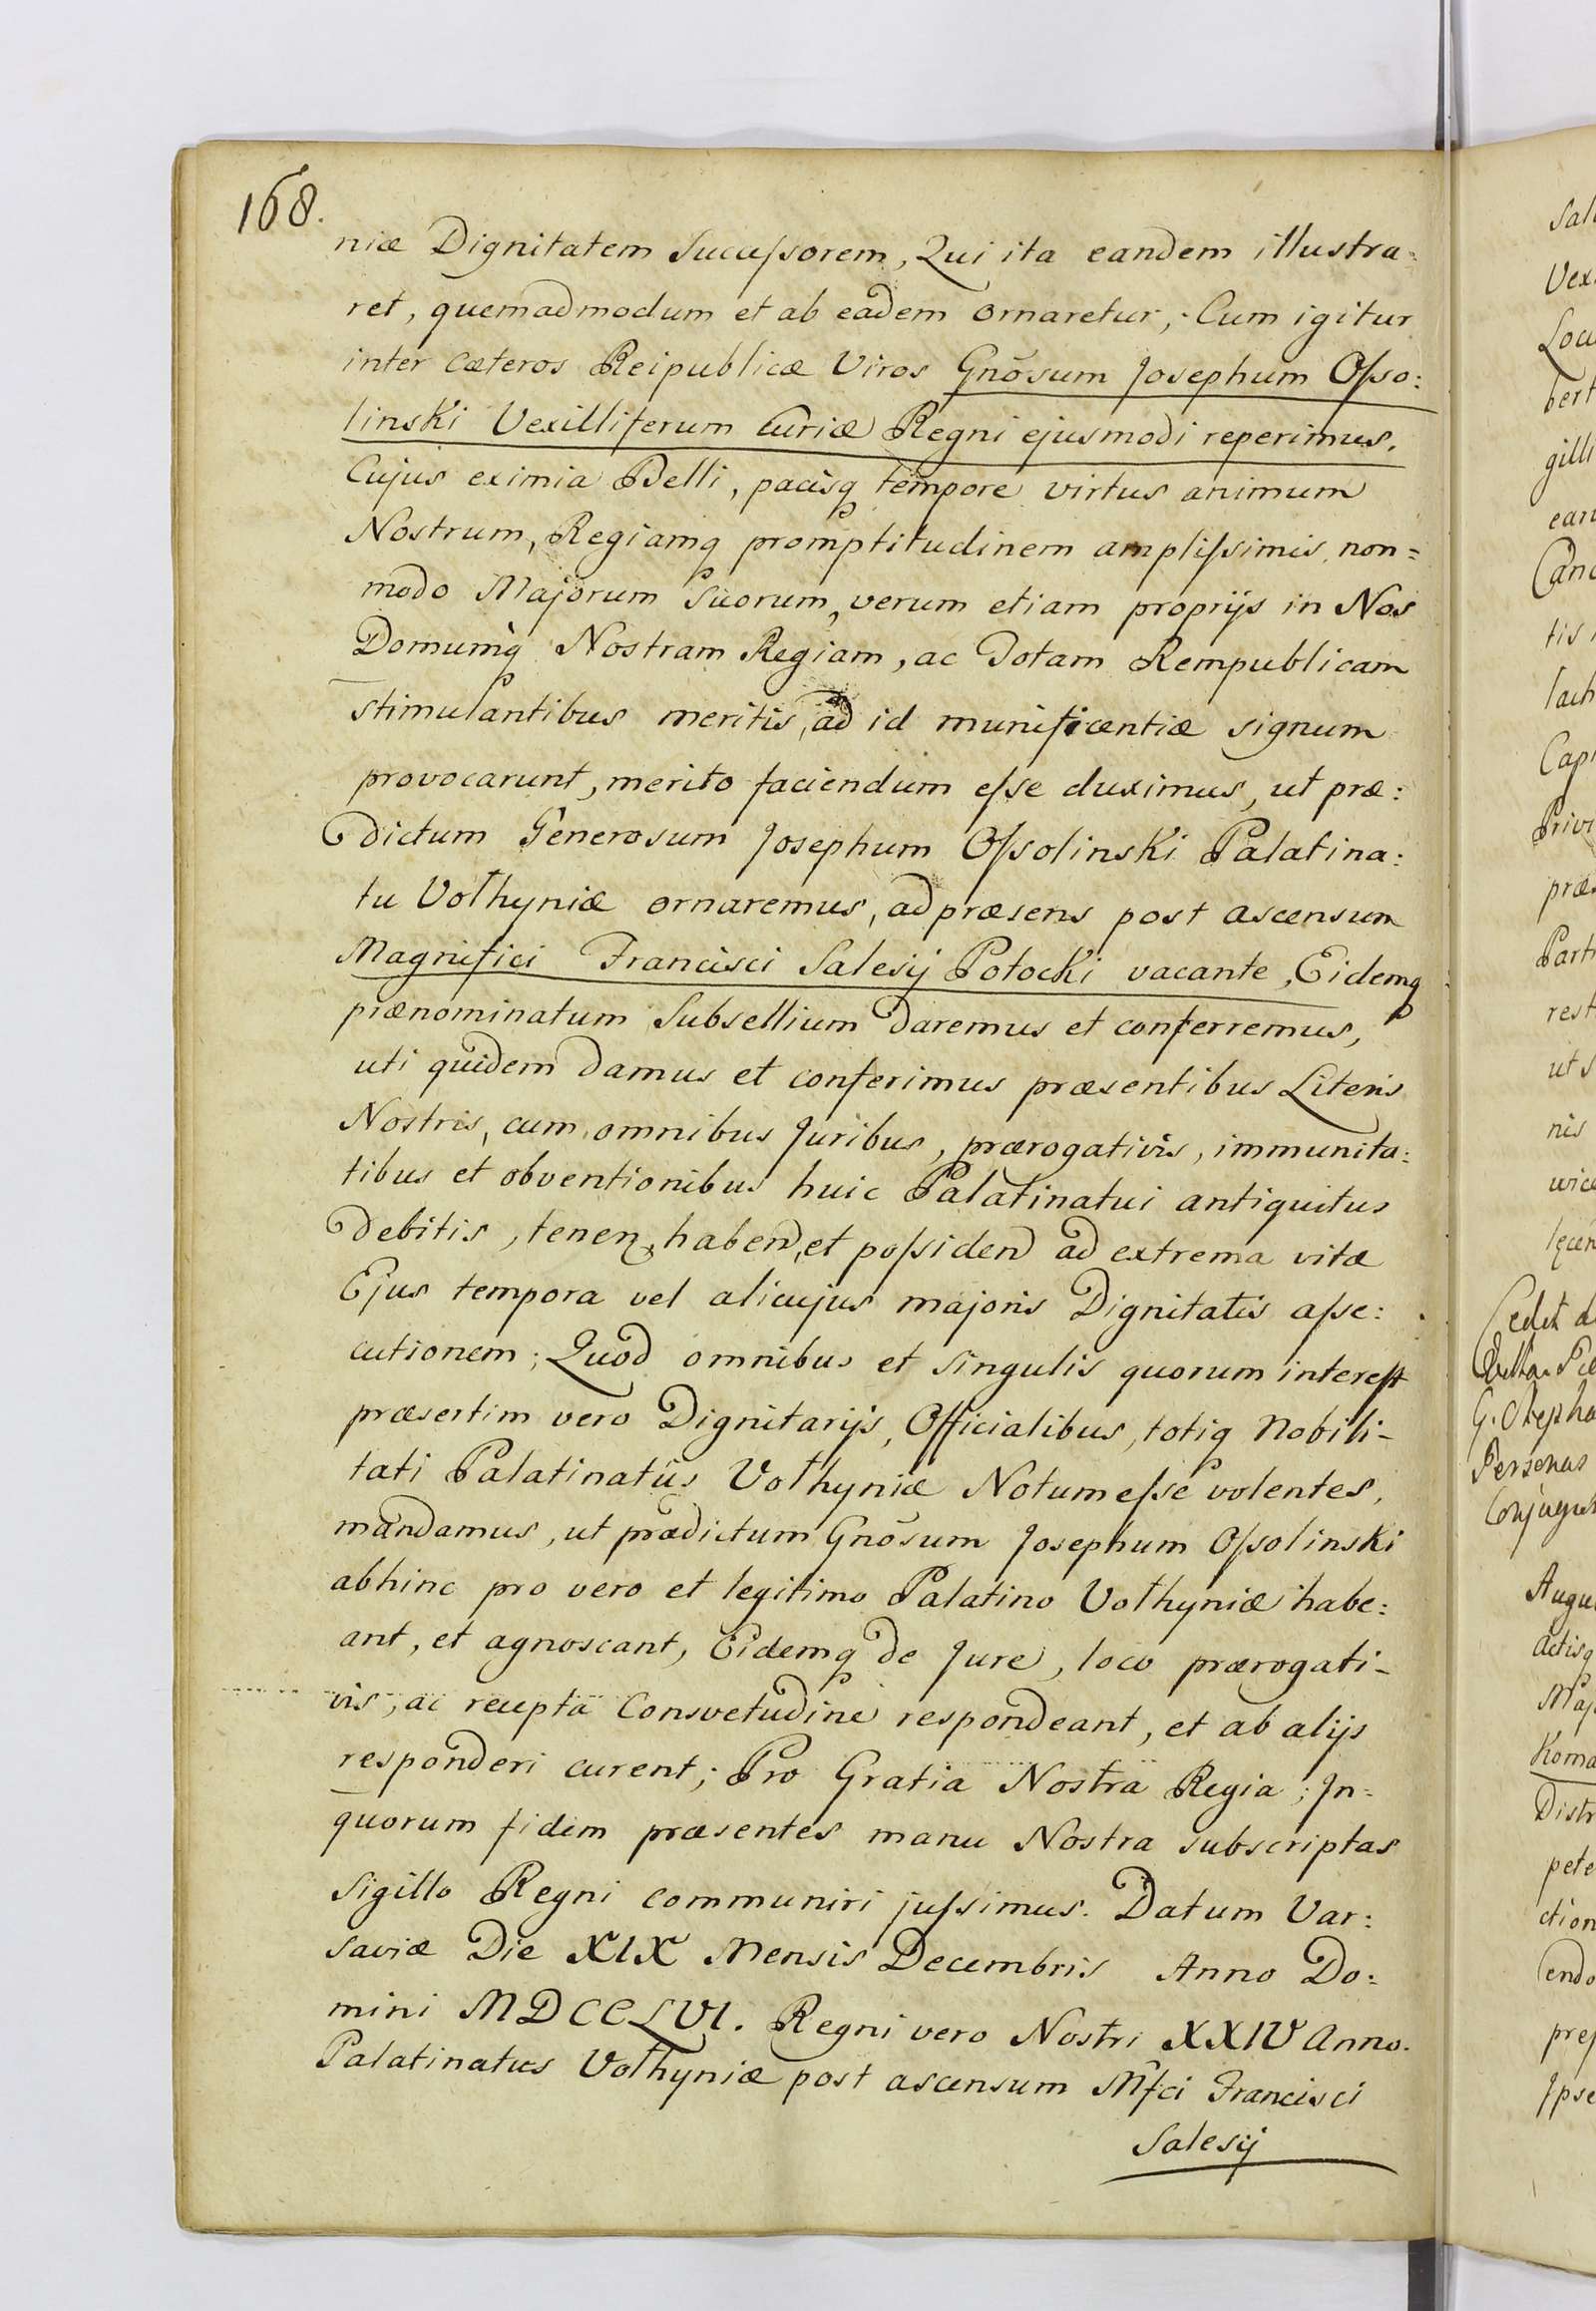 168.
niæ Dignitatem Succeſsorem, Qui ita eandem illustra=
ret, quemadmodum et ab eadem ornaretur; Cum igitur
inter cæteros Reipublicæ Viros Gnõsum Josephum Oſso:
linski Vexilliferum Curiæ Regni ejusmodi reperimus.
Cujus eximia Belli, pacisq tempore virtus animum
Nostrum, Regiamq promptitudinem ampliſsimis, non=
modo Majorum Suorum, verum etiam proprijs in Nos
Domumq Nostram Regiam, ac Totam Rempublicam
stimulantibus meritis, ad id munificentiæ signum
provocarunt, merito faciendum eſse duximus, ut præ:
dictum Generosum Josephum Oſsolinski Palatina:
tu Volhyniæ ornaremus, ad præsens post ascensum
Magnifici Francisci Salesij Potocki vacante, Eidemq
prænominatum Subsellium daremus et conferremus,
uti quidem damus et conferimus præsentibus Literis
Nostris, cum omnibus Juribus, prærogativis, immunita:
tibus et obventionibus huic Palatinatui antiquitus
debitis, tenen, haben, et poſsiden ad extrema vitæ
Ejus tempora vel alicujus majoris Dignitatis aſse:
cutionem; Quod omnibus et singulis quorum intereſt
præsertim vero Dignitarijs, Officialibus, totiq Nobili-
tati Palatinatûs Volhyniæ Notum eſse volentes,
mandamus, ut prædictum Gnõsum Josephum Oſsolinski
abhinc pro vero et legitimo Palatino Volhyniæ habe:
ant, et agnoscant, Eidemq de Jure, loco prærogati-
vis, ac recepta Consvetudine respondeant, et ab alijs
responderi curent; Pro Gratia Nostra Regia; In=
quorum fidem præsentes manu Nostra subscriptas
Sigillo Regni communiri juſsimus. Datum Var:
saviæ Die XIX Mensis Decembris Anno Do:
mini MDCCLVI. Regni vero Nostri XXIV Anno.
Palatinatus Volhyniæ post ascensum Mfci Francisci
Salesij